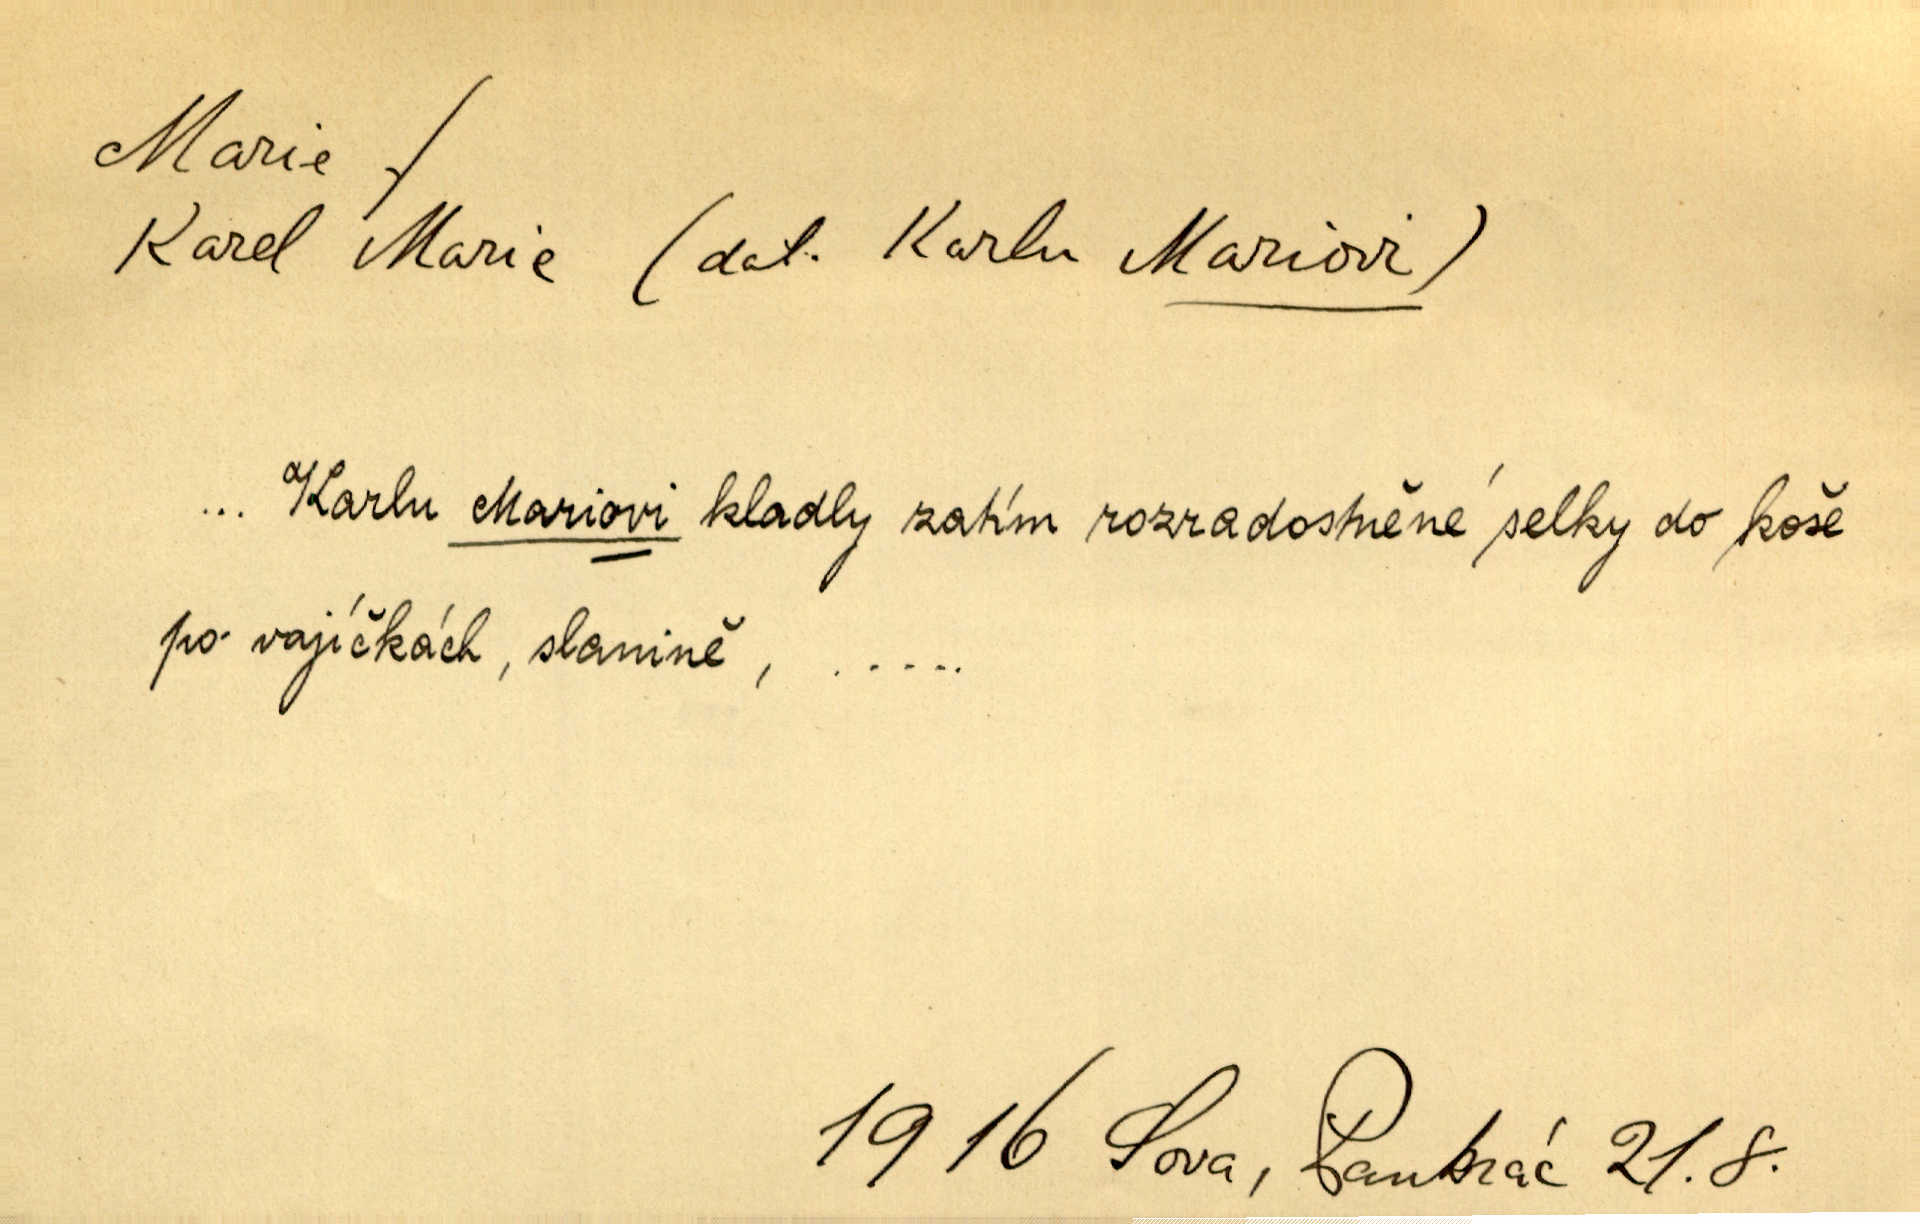 Marie /
Karel Marie (dat. Karlu Mariovi)
... Karlu Mariovi kladly zatím rozradostněné selky do koše
po vajíčkách, slanině, .....
1916 Sova, Pankrác 21.8.